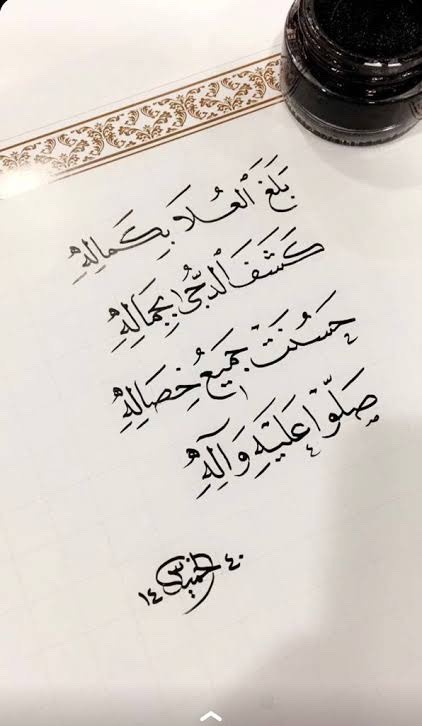 بَلَغَ الْعُلَا بِكَمَالِهِ
كَشَفَ الدُّجَى بِجَمَالِهِ
حَسُنَتْ جَمِيعُ خِصَالِهِ
صَلُّوا عَلَيْهِ وَآلِهِ
١٤ ٤٠